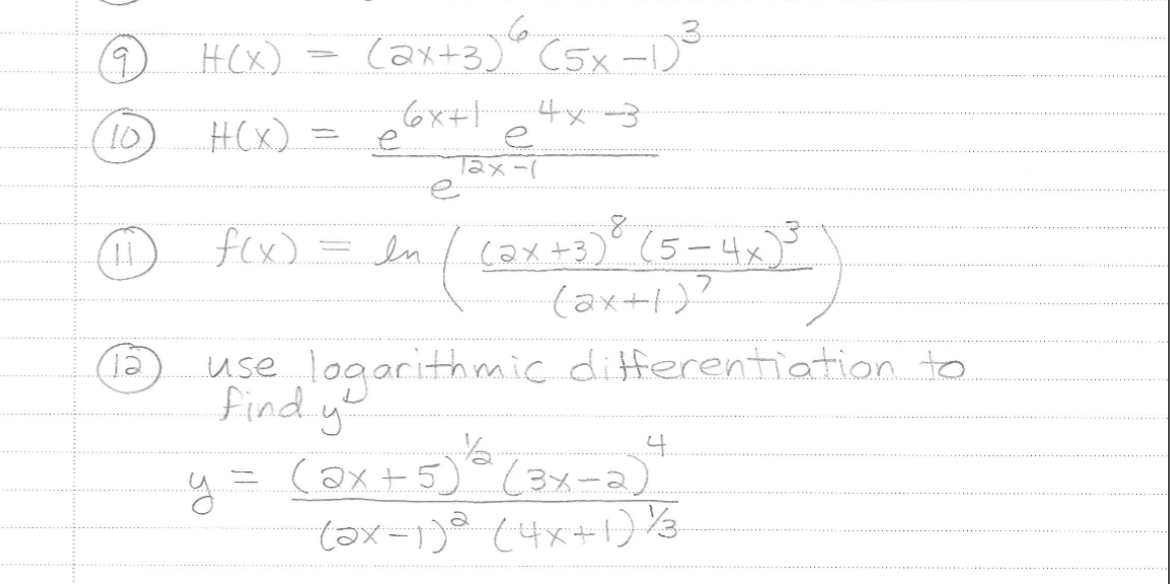 ⑨ H(x) = (2x+3)⁶ (5x-1)³
⑩ H(x) = (e^(6x+1) e^(4x-3)) / e^(12x-1)
⑪ f(x) = ln( ((2x+3)⁸ (5-4x)³) / (2x+1)⁷ )
⑫ use logarithmic differentiation to
find y'
y = ((2x+5)^(1/2) (3x-2)⁴) / ((2x-1)² (4x+1)^(1/3))